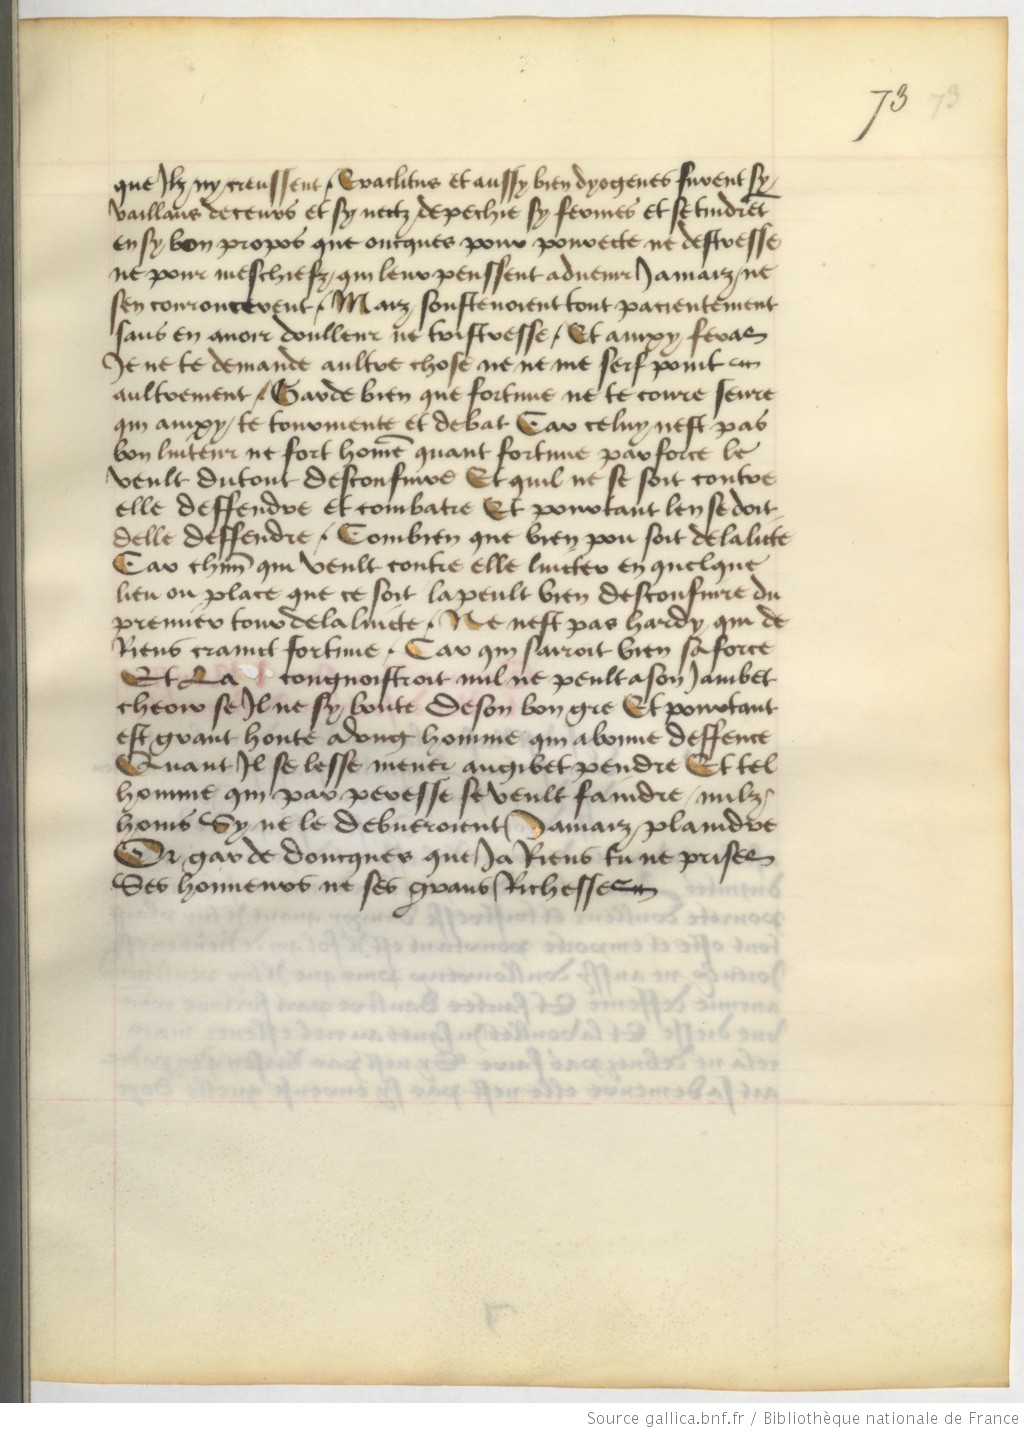 73 73
que Ilz ny creussent / Eraclitus et aussy bien dyogenes furent sy
vaillans de ceurs et sy nectz de pechie sy fermes et se tindrēt
en sy bon propos que oncques pour pourecte ne destresse
ne pour meschiefz qui leur peussent aduenir Jamaiz ne
sen couroucerent / Maiz soustenoient tout pacientement
sans en auoir doulleur ne tristresse / Et ainxy feras
Je ne te demande aultre chose ne ne me serf point en
aultrement / Garde bien que fortune ne te coure seure
qui ainxy te tourmente et debat Car celuy nest pas
bon luiteur ne fort homē quant fortune par force le
veult du tout desconfire Et quil ne se soit contre
elle deffendre et combatre Et pourtant len se doit
delle deffendre / Combien que bien pou soit de la licte
Car chūn qui veult contre elle luicter en quelque
lieu ou place que ce soit la peult bien desconfire du
premier tour de la luicte / Ne nest pas hardy qui de
Riens craint fortune / Car qui sarroit bien sa force
Et La congnoistroit nul ne peult a son Jambet
cheoir se Il ne sy boute de son bon gre Et pourtant
est grant honte a dung homme qui a bonne deffence
Quant Il se lesse mener au gibet pendre Et tel
homme qui par peresse se veult faindre nulz
homs Sy ne le debueroient Jamaiz plaindre
Or garde doncques que Ja Riens tu ne prises
Ses honneurs ne ses grans Richesses
Source gallica.bnf.fr / Bibliothèque nationale de France